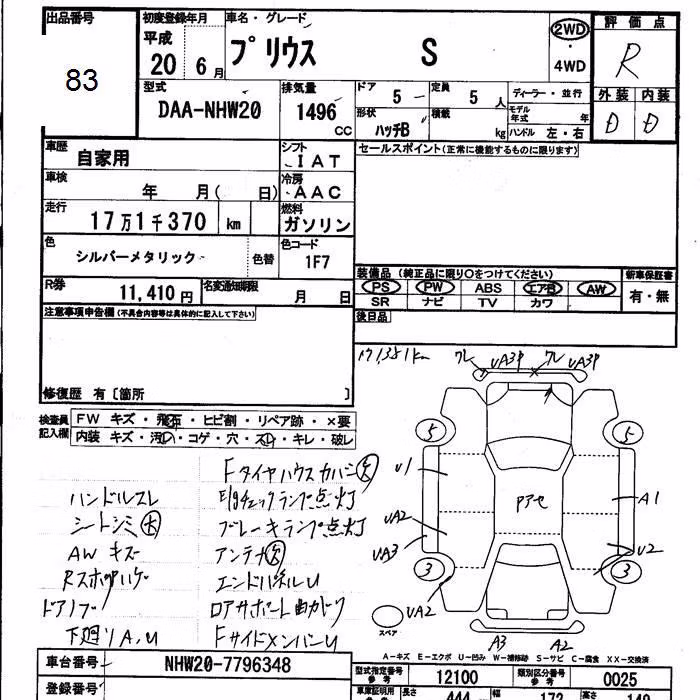 出品番号
83
初度登録年月
平成
20 6月
車名・グレード
プリウス S
2WD
・
4WD
評価点
R
外装 内装
D D
型式
DAA-NHW20
排気量
1496 CC
ドア 5
定員 5 人
形状 ハッチB
積載 kg
ディーラー・並行
モデル年式 年
ハンドル 左・右
車歴
自家用
シフト
IAT
車検
年 月( 日)
冷房
AAC
走行
17万1千370 km
燃料
ガソリン
色
シルバーメタリック
色替
色コード
1F7
R券
11,410円
名変通知期限
月 日
セールスポイント(正常に機能するものに限ります)
装備品(純正品に限り○をつけてください)
PS PW ABS エアB AW
SR ナビ TV カワ
新車保証書
有・無
後日品
注意事項申告欄(不具合内容等は具体的に記入して下さい)
修復歴 有〔箇所 〕
171,381km
ワレ UA3P ワレ UA3P
検査員記入欄
FW キズ・飛石・ヒビ割・リペア跡・×要
内装 キズ・汚レ・コゲ・穴・スレ・キレ・破レ
ハンドルスレ
シートシミ大
AW キズ
Rスポ
ドアノブ
下廻りA,U
Fタイヤハウスカバー欠
E/gチェックランプ点灯
ブレーキランプ点灯
アンテナ欠
エンドパネルU
ロアサポート曲
FサイドメンバーU
5 5
U1
Pアセ
A1
UA2
UA3
U2
3 3
UA2
スペア
A3 A2
A-キズ E-エクボ U-凹み W-補修跡 S-サビ C-腐食 XX-交換済
車台番号
NHW20-7796348
登録番号
型式指定番号
12100
類別区分番号
0025
参考
車車証明用
長さ 444
幅 172
高さ 149